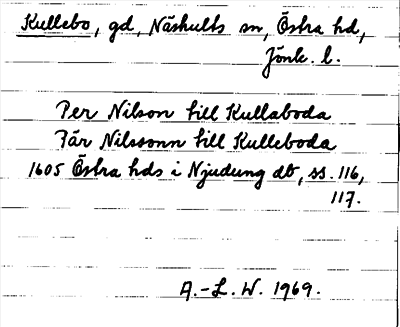 Kullebo, gd, Näshults sn, Östra hd,
Jönk. l.
Per Nilson till Kullaboda
Pär Nilssonn till Kulleboda
1605 Östra hds i Njudung db, ss. 116,
117.
A.-L. W. 1969.